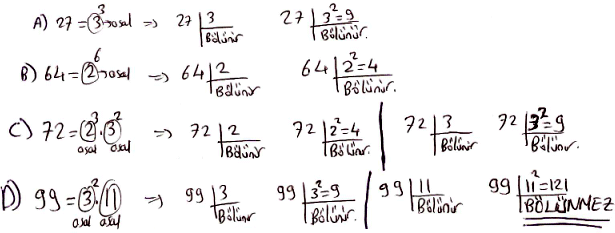 A) 27 = 3³ → asal => 27 | 3 Bölünür 27 | 3² = 9 Bölünür.
B) 64 = 2⁶ → asal => 64 | 2 Bölünür 64 | 2² = 4 Bölünür.
C) 72 = 2³ . 3² asal asal => 72 | 2 Bölünür 72 | 2² = 4 Bölünür. | 72 | 3 Bölünür 72 | 3² = 9 Bölünür.
D) 99 = 3² . 11 asal asal => 99 | 3 Bölünür 99 | 3² = 9 Bölünür. | 99 | 11 Bölünür 99 | 11² = 121 BÖLÜNMEZ